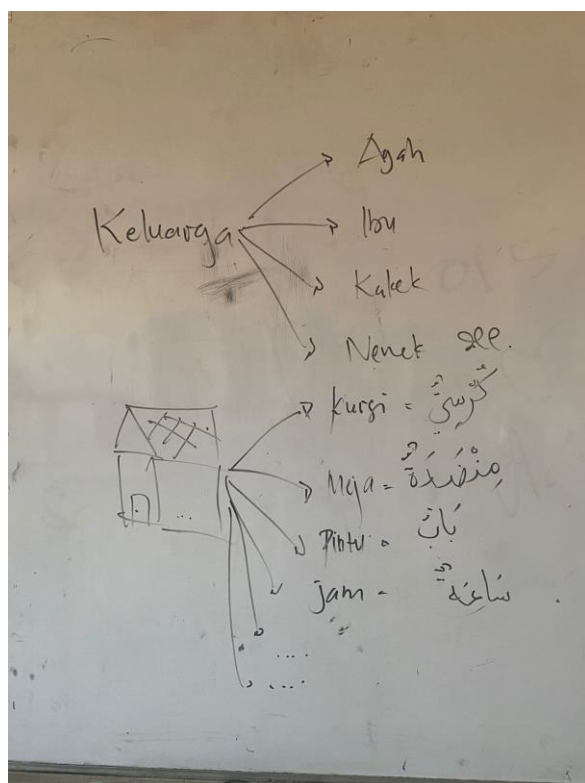 Ayah
Keluarga
Ibu
Kakek
Nenek
Kursi = كُرْسِيٌّ
Meja = مِنْضَدَةٌ
Pintu = بَابٌ
jam = سَاعَةٌ
...
....
....